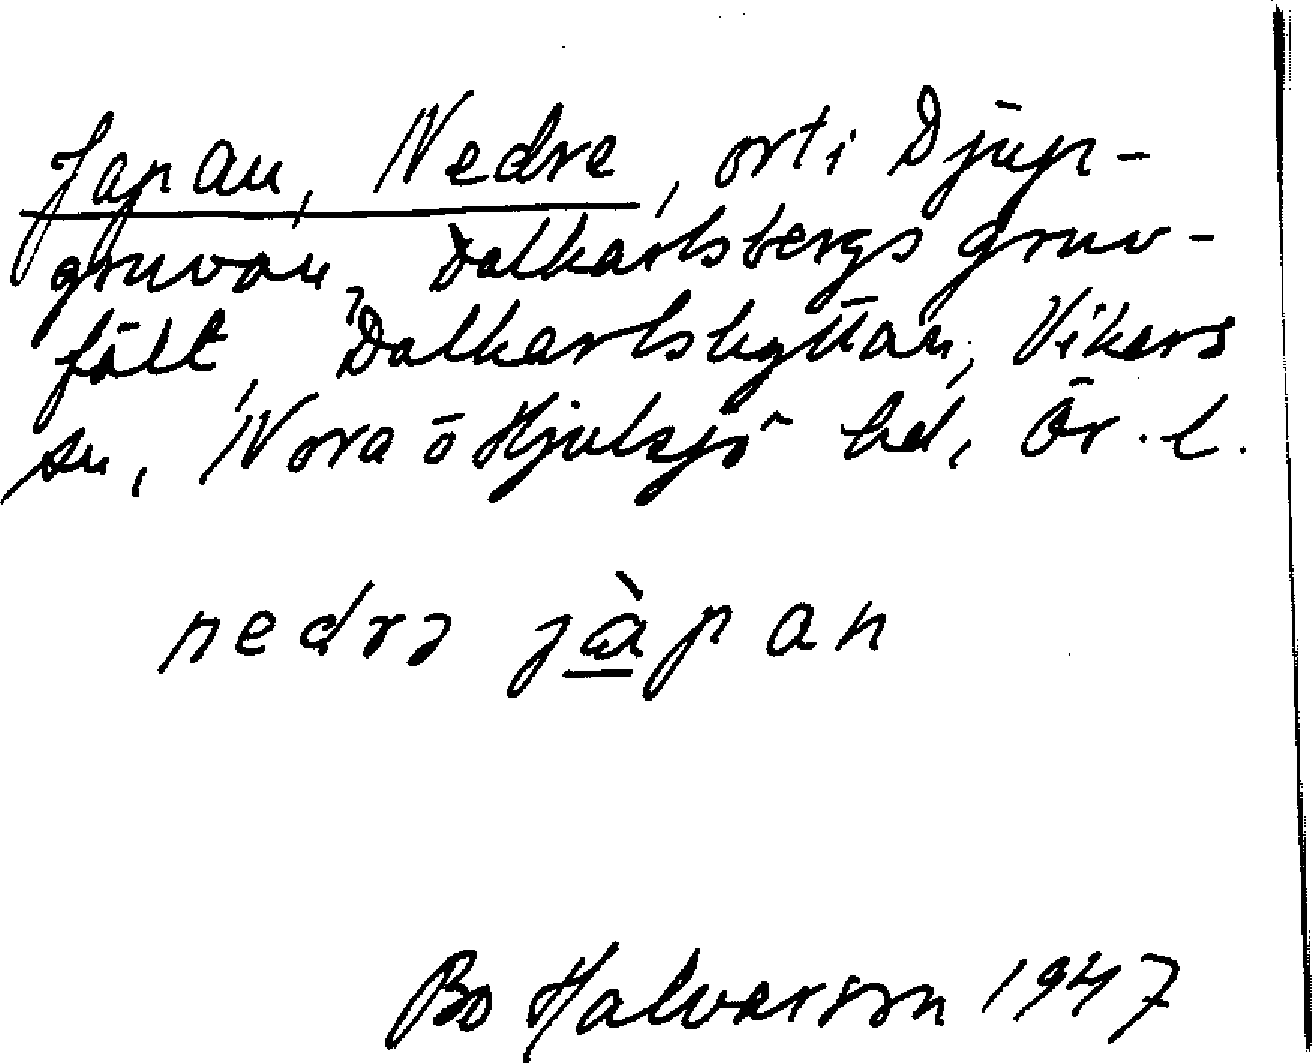 Japan, Nedre, ort i Djup-
gruvan, Dalkarlsbergs gruv-
fält, Dalkarlshyttan, Vikers
sn, Nora o Hjulsjö bd, Ör. l.
nedrɿ jàpan
Bo Halvarson 1947